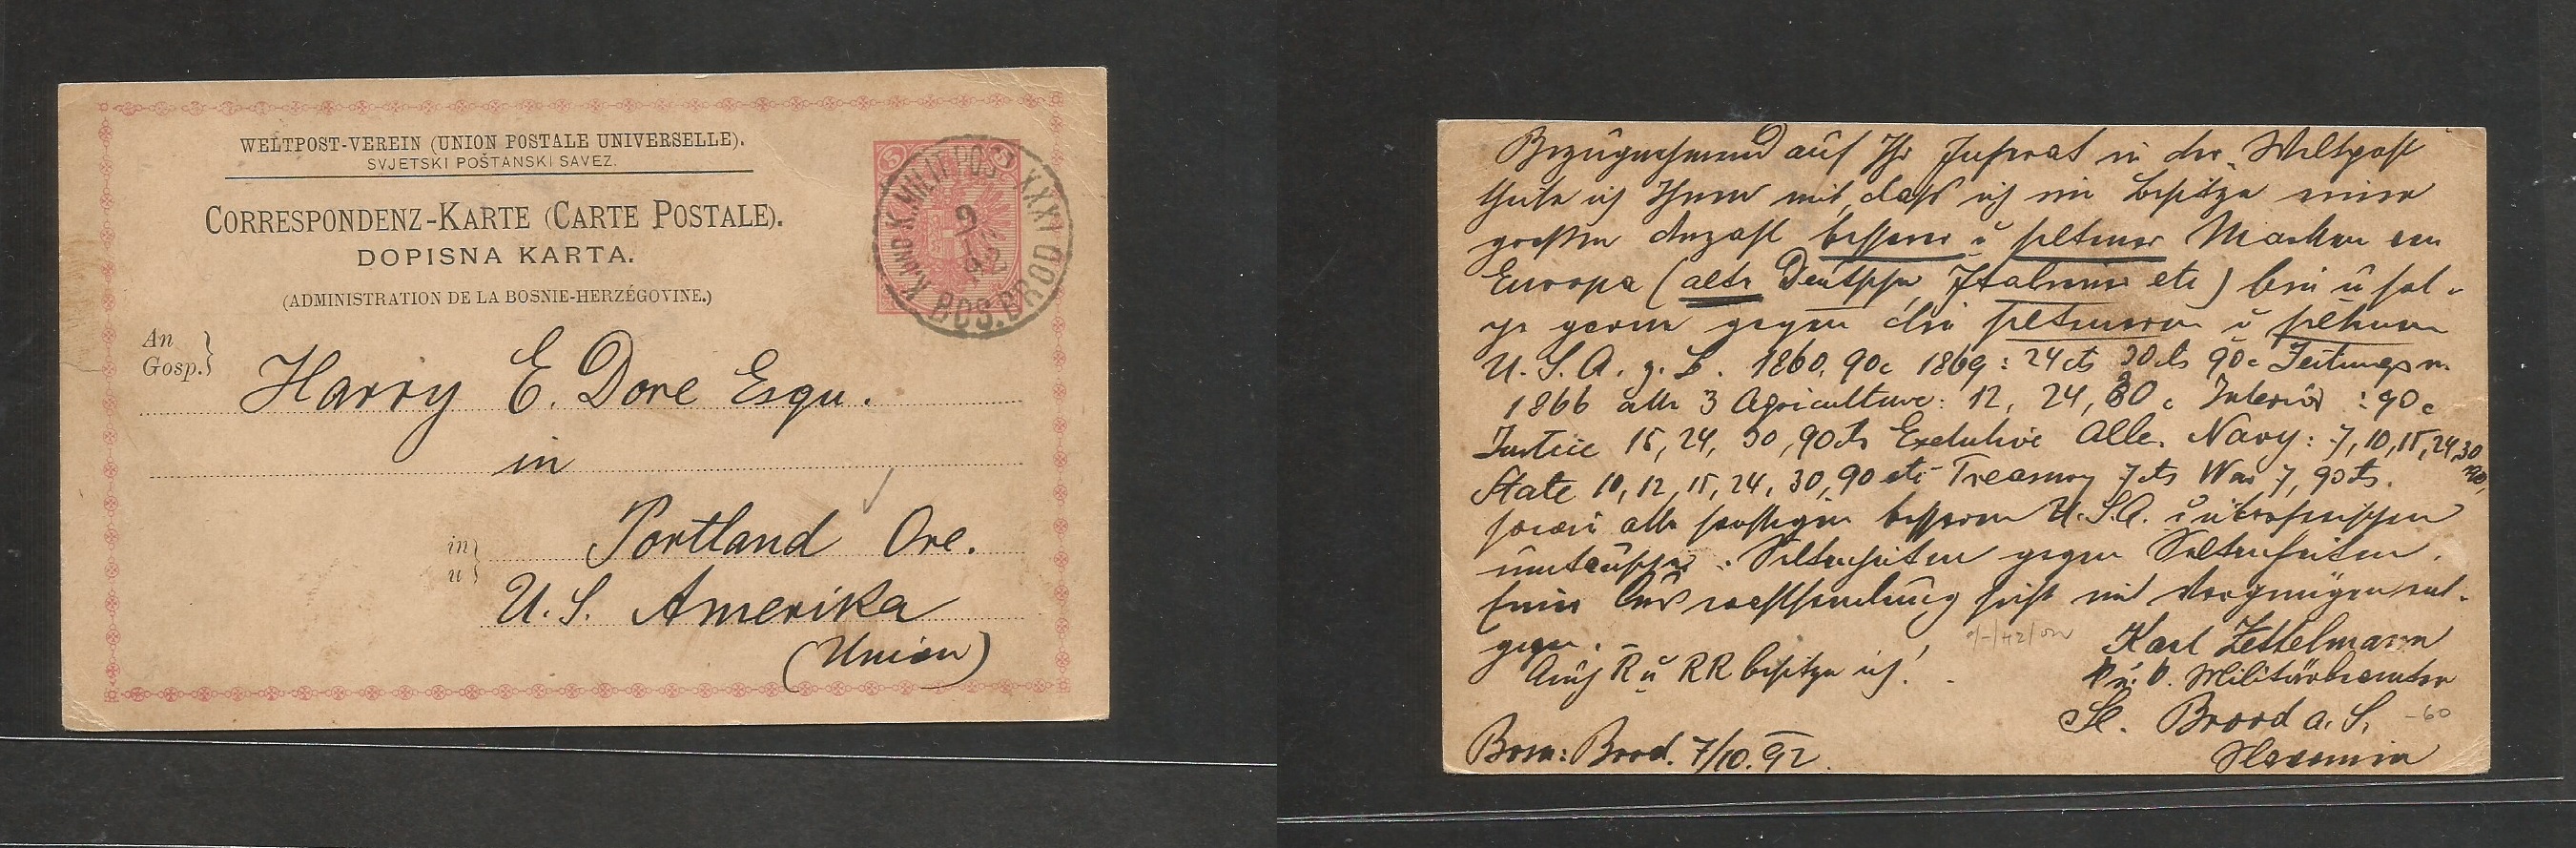 WELTPOST-VEREIN (UNION POSTALE UNIVERSELLE).
SVJETSKI POŠTANSKI SAVEZ.
CORRESPONDENZ-KARTE (CARTE POSTALE).
DOPISNA KARTA.
(ADMINISTRATION DE LA BOSNIE-HERZÉGOVINE.)
K. UND K. MILIT. POST XXXI
9
10
92
BOS. BROD
An
Gosp.}
Harry E. Dore Esqu.
in
in
u}
Portland Ore.
U.S. Amerika
(Union)
Bezugnehmend auf Ihr Inserat in der Weltpost
theile ich Ihnen mit, dass ich im Besitze einer
großen Anzahl besserer u seltener Marken von
Europa (alte Deutsche, Italiener etc) bin u sol-
che gerne gegen die selteneren u seltenen
U.S.A. z.B. 1860, 90c 1869: 24cts 30cts 90c Zeitungsm.
1866 alle 3 Agriculture: 12, 24, 30c Interior: 90c
Justice 15, 24, 30, 90cts Exekutive Alle. Navy: 7, 10, 15, 24, 30
90,
State 10, 12, 15, 24, 30, 90 etc Treasury 7cts War 7, 90cts.
sowie alle sonstigen besseren U.S.A. u überseeischen
umtausche. Seltenheiten gegen Seltenheiten.
Ihrer Auswahlsendung sehe mit Vergnügen ent-
gegen.
Auch R u RR besitze ich!
Karl Zettelmann
k u. k. Militärbeamter
Sl. Brood a. S.
-60
Slavonien
Bosn: Brod. 7/10. 92.